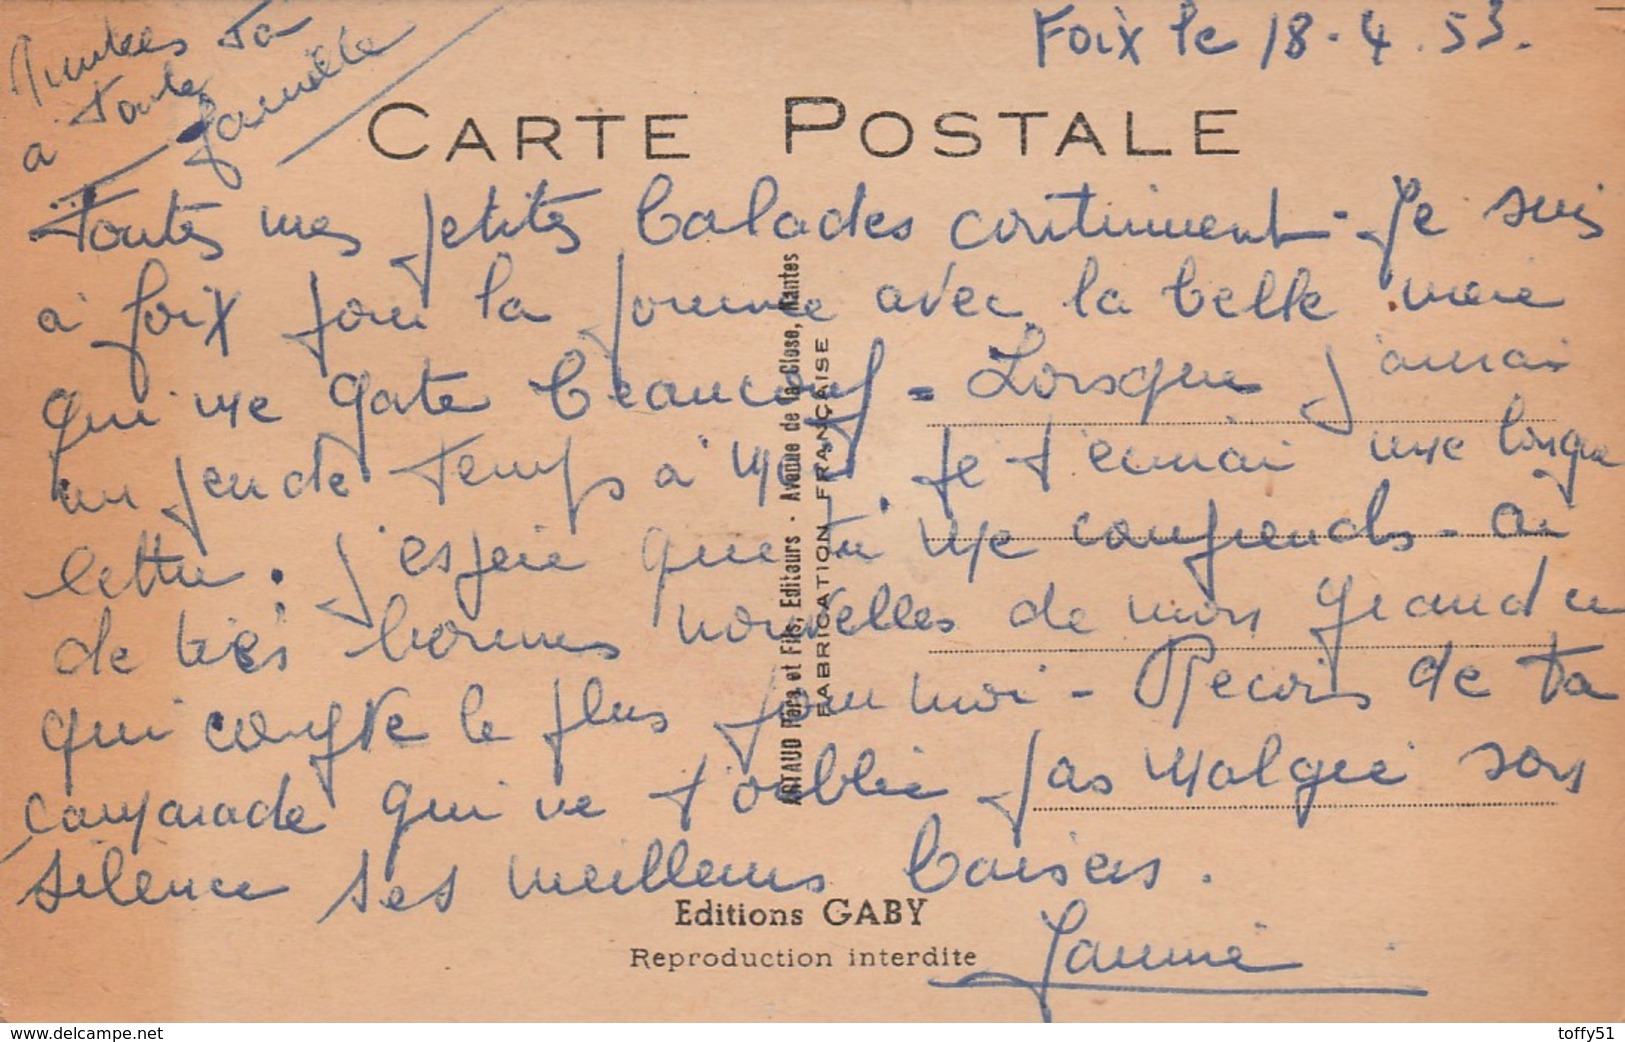 Foix le 18-4.53.
à toute ta
famille
CARTE POSTALE
Toutes mes petites balades continuent - Je suis
à foix pour la journée avec la belle mère
qui me gate beaucoup - Lorsque j'aurai
un peu de temps à moi, je t'enverrai une longue
lettre. j'espère que tu me comprends - ai
de très bonnes nouvelles de mon grand
qui compte le plus pour moi - Reçois de ta
camarade qui ne t'oublie pas malgré son
silence ses meilleurs baisers.
Jannie
ARTAUD Père et Fils, Editeurs - Avenue de la Close, Nantes
FABRICATION FRANÇAISE
Editions GABY
Reproduction interdite
www.delcampe.net
toffy51